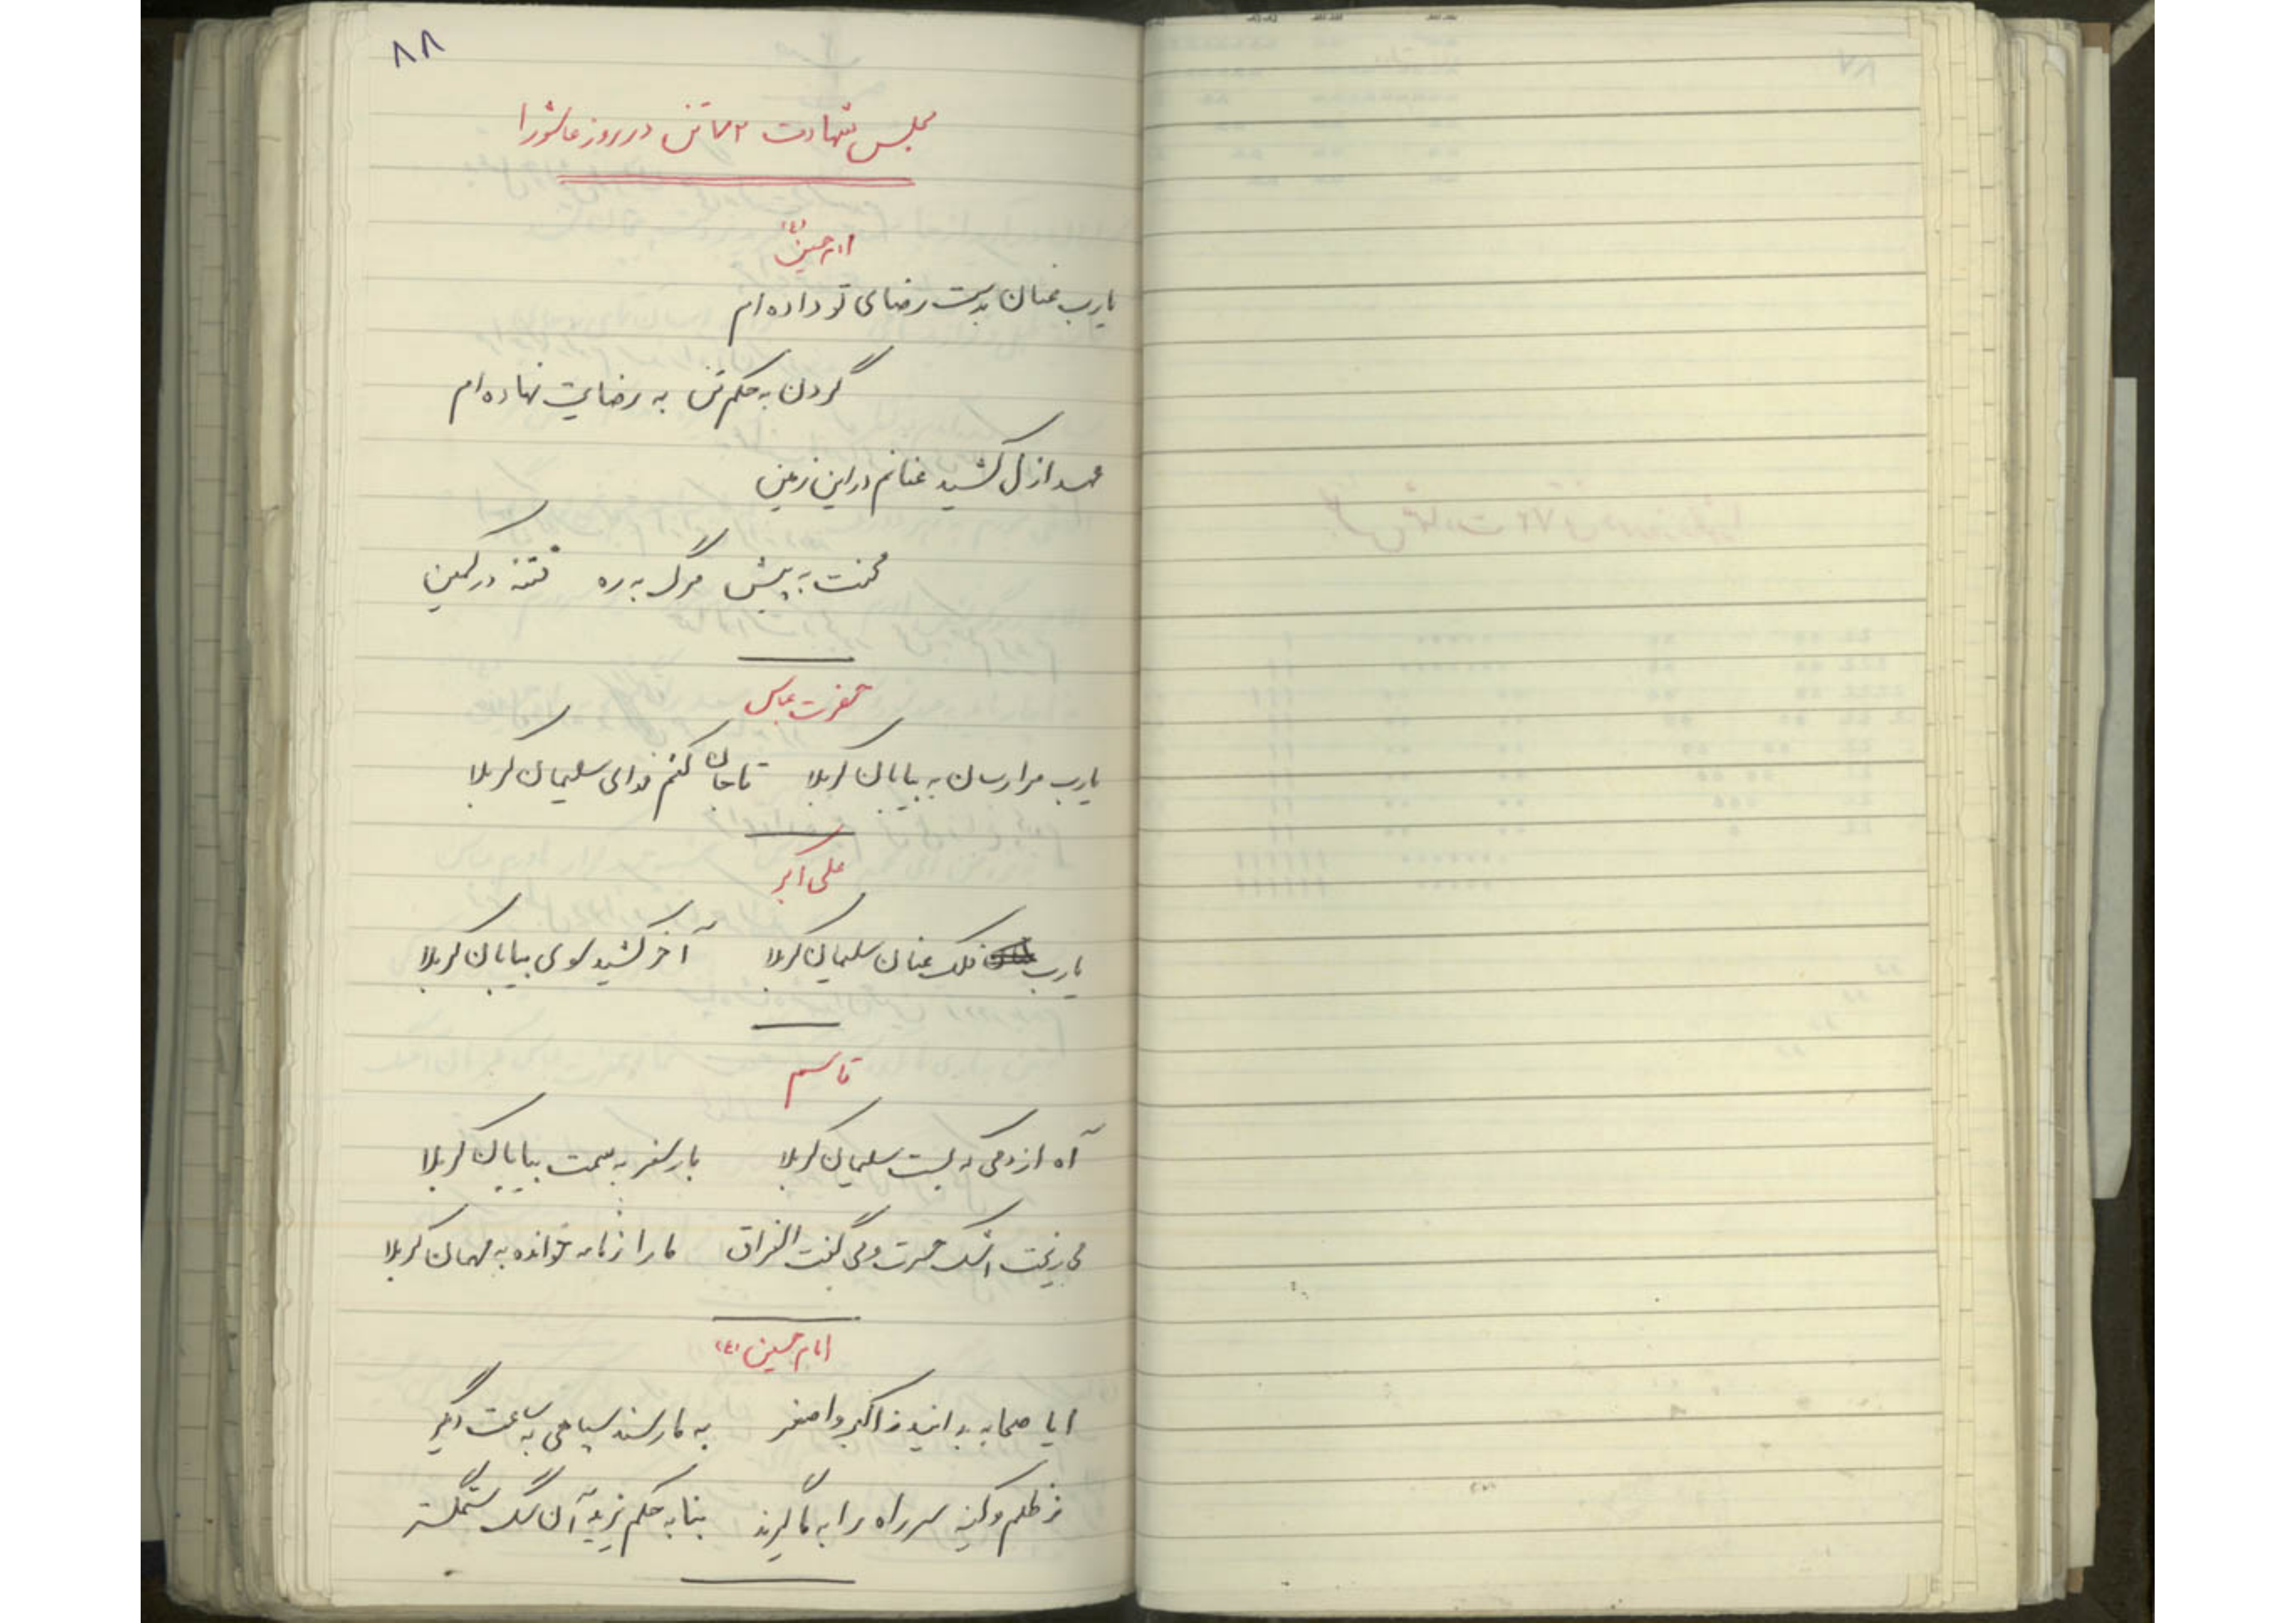 ۸۸
مجلس شهادت ۷۲ تن در روز عاشورا
امام حسین (ع)
یارب عنان بدست رضای تو داده ام
گردن به حکم تن به رضایت نهاده ام
عهد ازل کشید عنانم در این زمین
محنت به پیش مرگ به ره فتنه در کمین
حضرت عباس
یارب مرا رسان به بیابان کربلا تا جان کنم فدای سلیمان کربلا
علی اکبر
یارب فلک عنان سلیمان کربلا آخر کشید سوی بیابان کربلا
قاسم
آه از دمی که بست سلیمان کربلا بار سفر به سمت بیابان کربلا
می ریخت اشک حسرت و می گفت الفراق ما را ز نامه خوانده به مهمان کربلا
امام حسین (ع)
ایا صحابه بدانید ز اکبر و اصغر به ما رسند سپاهی به ساعت دیگر
ز ظلم و کینه سر راه را به ما گیرند بنا به حکم یزید آن سگ ستمگستر